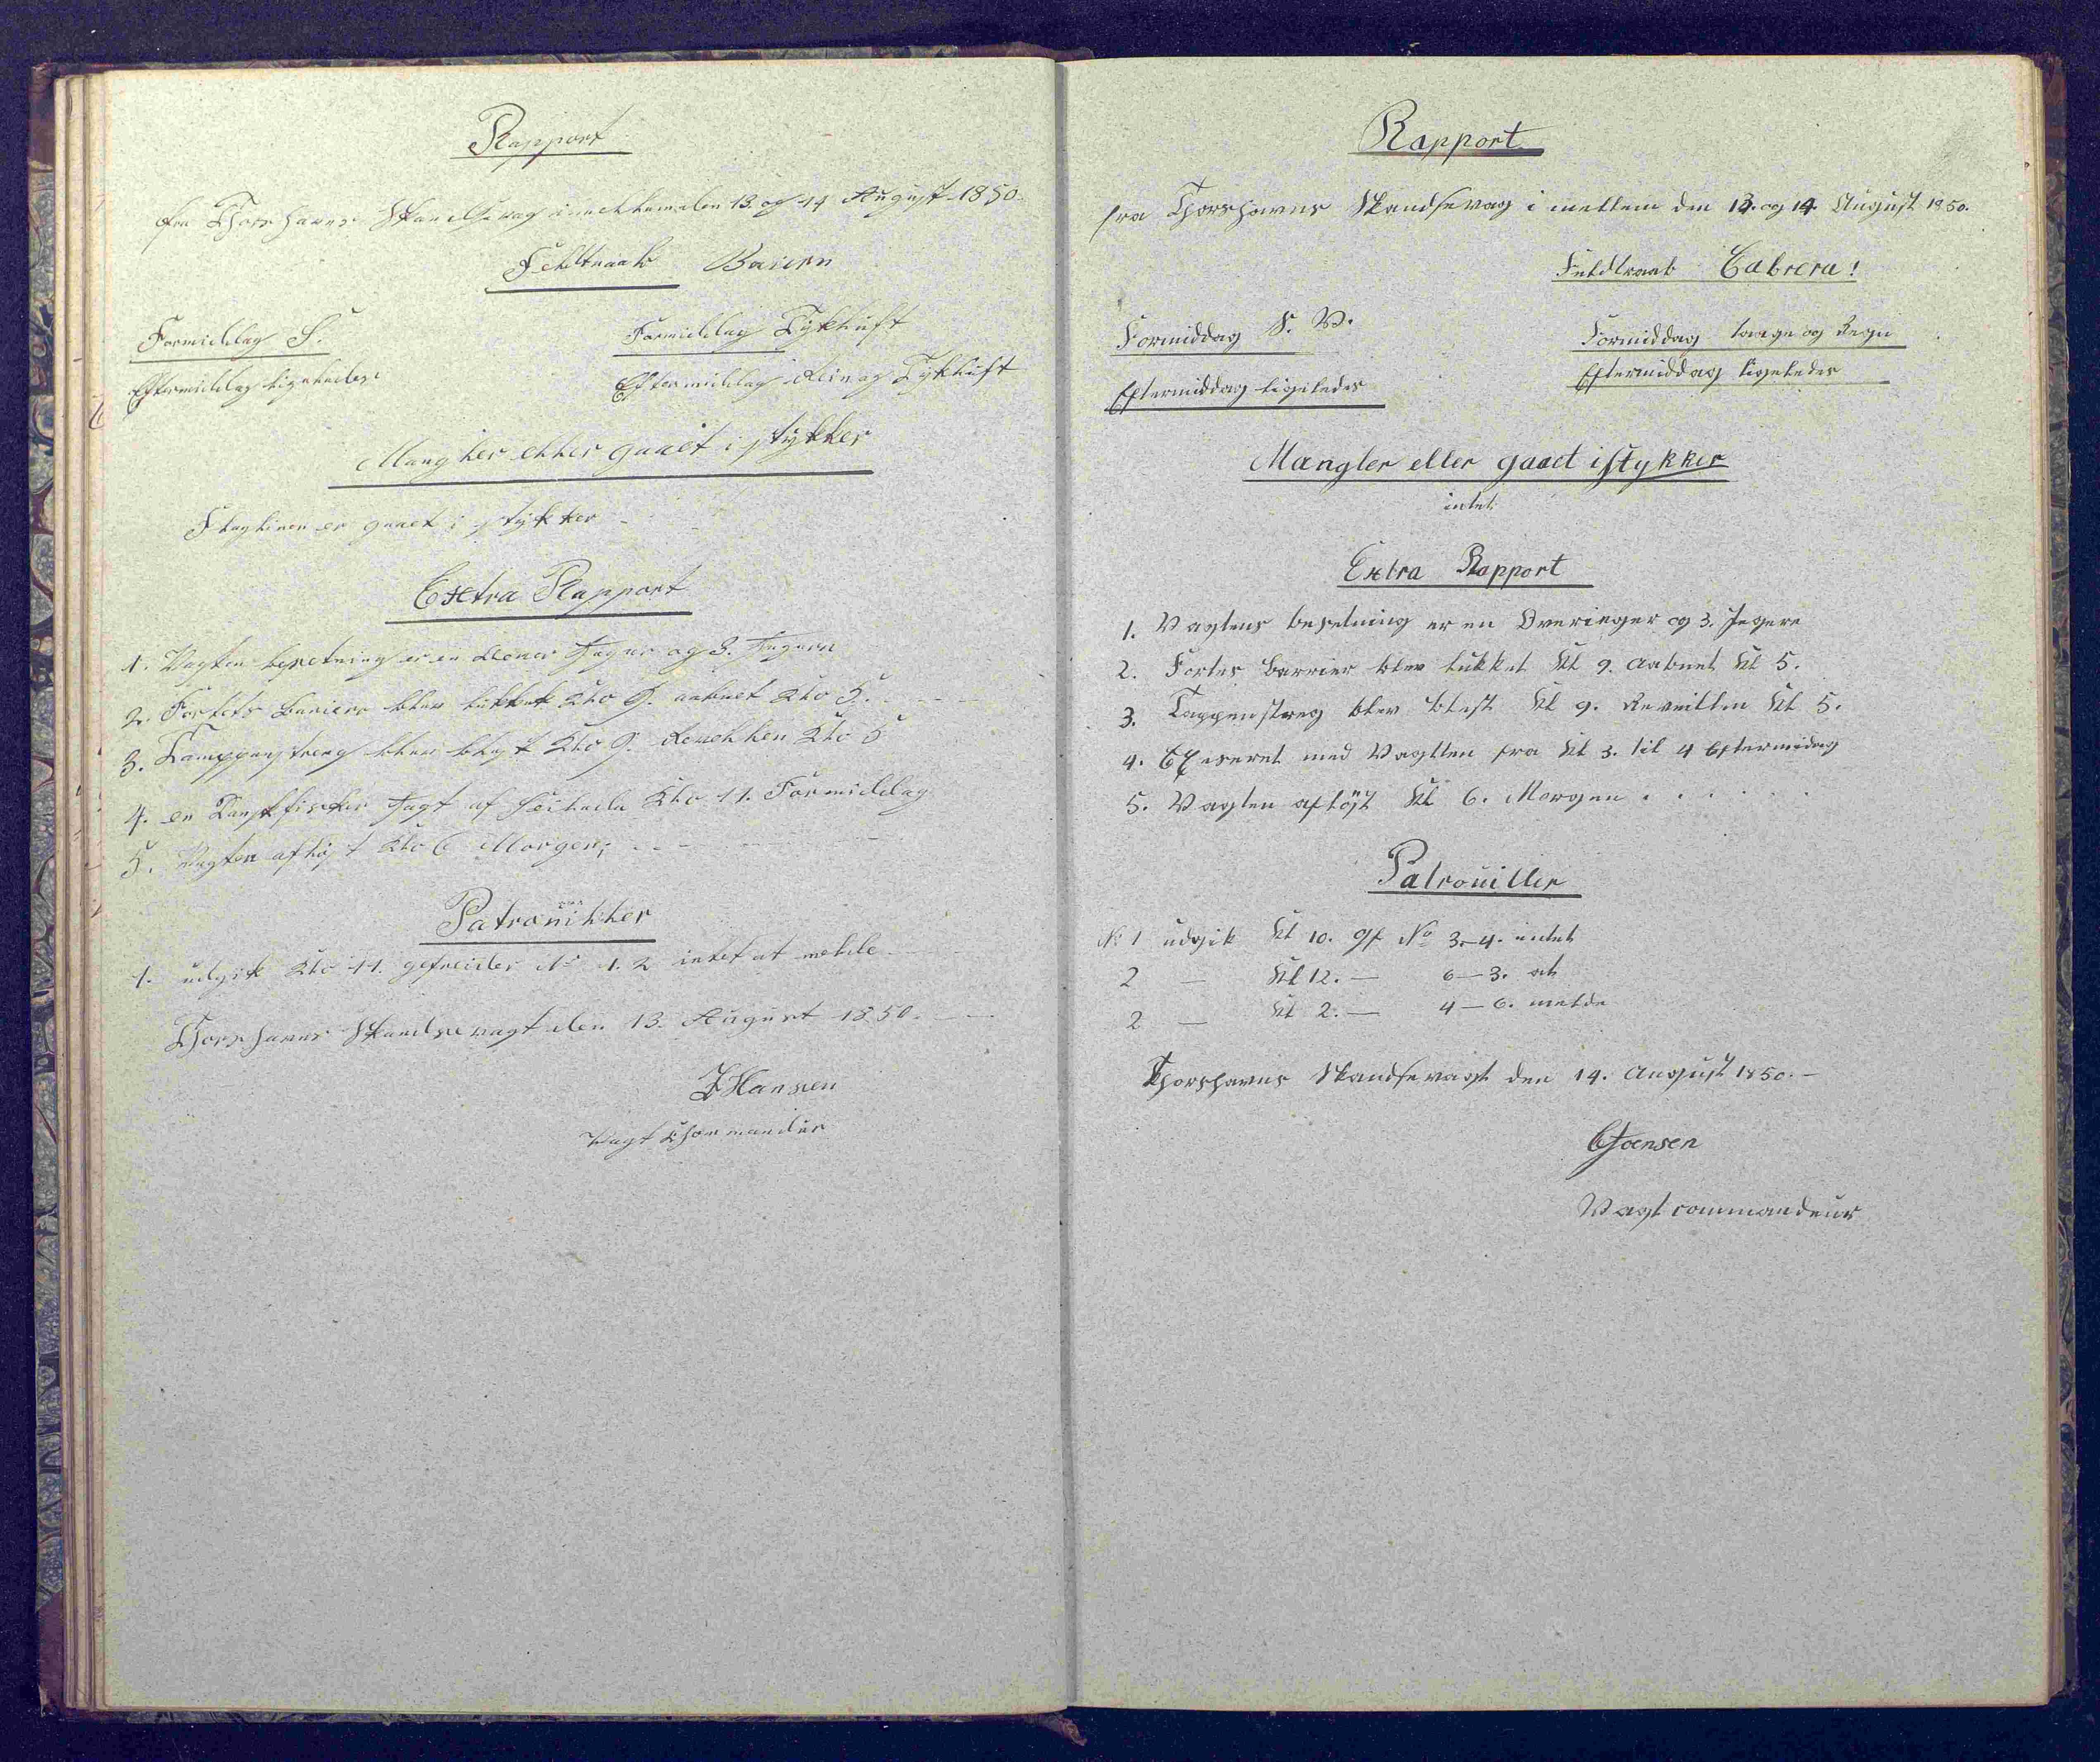 Rapport
fra Thorshavns Skandsevag imellemelen 13 og 14 August 1850
Feldtraab Baiern
Formiddag S.
Eftermiddag ligeledes
Formiddag Tykluft
Eftermiddag Rein og Tykluft
Mangler eller gaaet i stykker
Flaglinen er gaaet i stykker
Extra Rapport
1. Vagten besetning er en Over Jæger og 3. Jægere
2. Fortets Bariere blev lukket Klo 9. aabnet Klo 5.
3. Tamppenstreg blev blest Klo 9. Revellen Klo 5
4. en Danskfisker Jagt af Klo 11. Formiddag
5. Vagten afløst Klo 6 Morgen;
Patrouiller
1. udgik Klo 11. gefreider No 1. 2 intet at melde
Thorshavns Skandsevagt den 13. August 1850.
JHansen
Vagt Chommandür
Rapport
fra Thorshavns Skandsevag i mellem den 13. og 14. August 1850.
Feldtraab Cabrera!
Formiddag S. W.
Eftermiddag ligeledes
Formiddag taage og Regn
Eftermiddag ligeledes
Mangler eller gaaet istykker
intet
Extra Rapport
1. Vagtens besetning er en Overieger og 3. Jegere
2. Fortes Barrier blev lukket Kl 9. Aabnet Kl 5.
3. Tappenstreg blev blest Kl 9. Reveillen Kl 5.
4. Exeseret med Vagtten fra Kl 3. til 4 Eftermidag
5. Vagten afløst Kl 6. Morgen
Patrouiller
No 1 udgik Kl 10. gf No 3-4. intet
2 — Kl 12. — 6-3. at
2 — Kl 2. — 4-6. melde
Thorshavns Skandsevagt den 14. August 1850.
Joensen
Vagtcommandeur